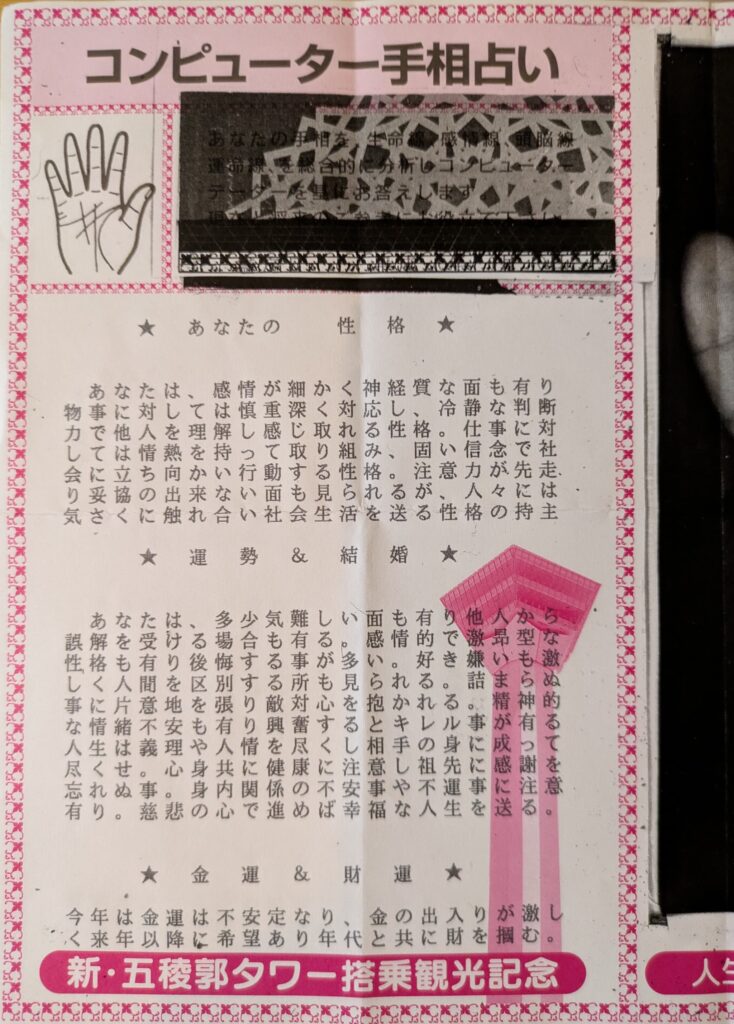 コンピューター手相占い
あなたの手相を、生命線、感情線、頭脳線
運命線、を総合的に分析しコンピューター
データーを基にお答えします
★ あなたの 性格 ★
あなたは、感情が細かく神経質な面も有り
物事に対しては慎重深く対応し、冷静な判断
力で他人を理解し感じ取れる性格。仕事に対
しては情熱を持って取り組み、固い信念で社
会に立ち向かい行動する性格。注意力が先走
り妥協の出来ない面も見られるが、人々には
気さくに触れ合い社会生活を送る性格の持主
★ 運勢&結婚 ★
あなたは、多少気難しい面も有り他人から
誤解を受ける場合も有る。感情的で激昂型な
性格も有り後悔する事が多い。好き嫌いも激
しく人間を区別する所も見られる。詰まらぬ
事に片意地張り敵対心を抱かれる。精神的
な情緒不安も有り興奮するとキレル事が有る
人生は義理や人情に尽くし相手の身に成って
尽くせ。心身共に健康に注意し祖先に感謝を
忘れぬ事。身内に関係の不安事や不運に注意
有り。慈悲の心で進めば幸福な人生を送る。
★ 金運&財運 ★
今年は金運は不安定なり、金の出入りが激し
く来年以降に希望あり年代と共に財を摑む。
新・五稜郭タワー搭乗観光記念
人生